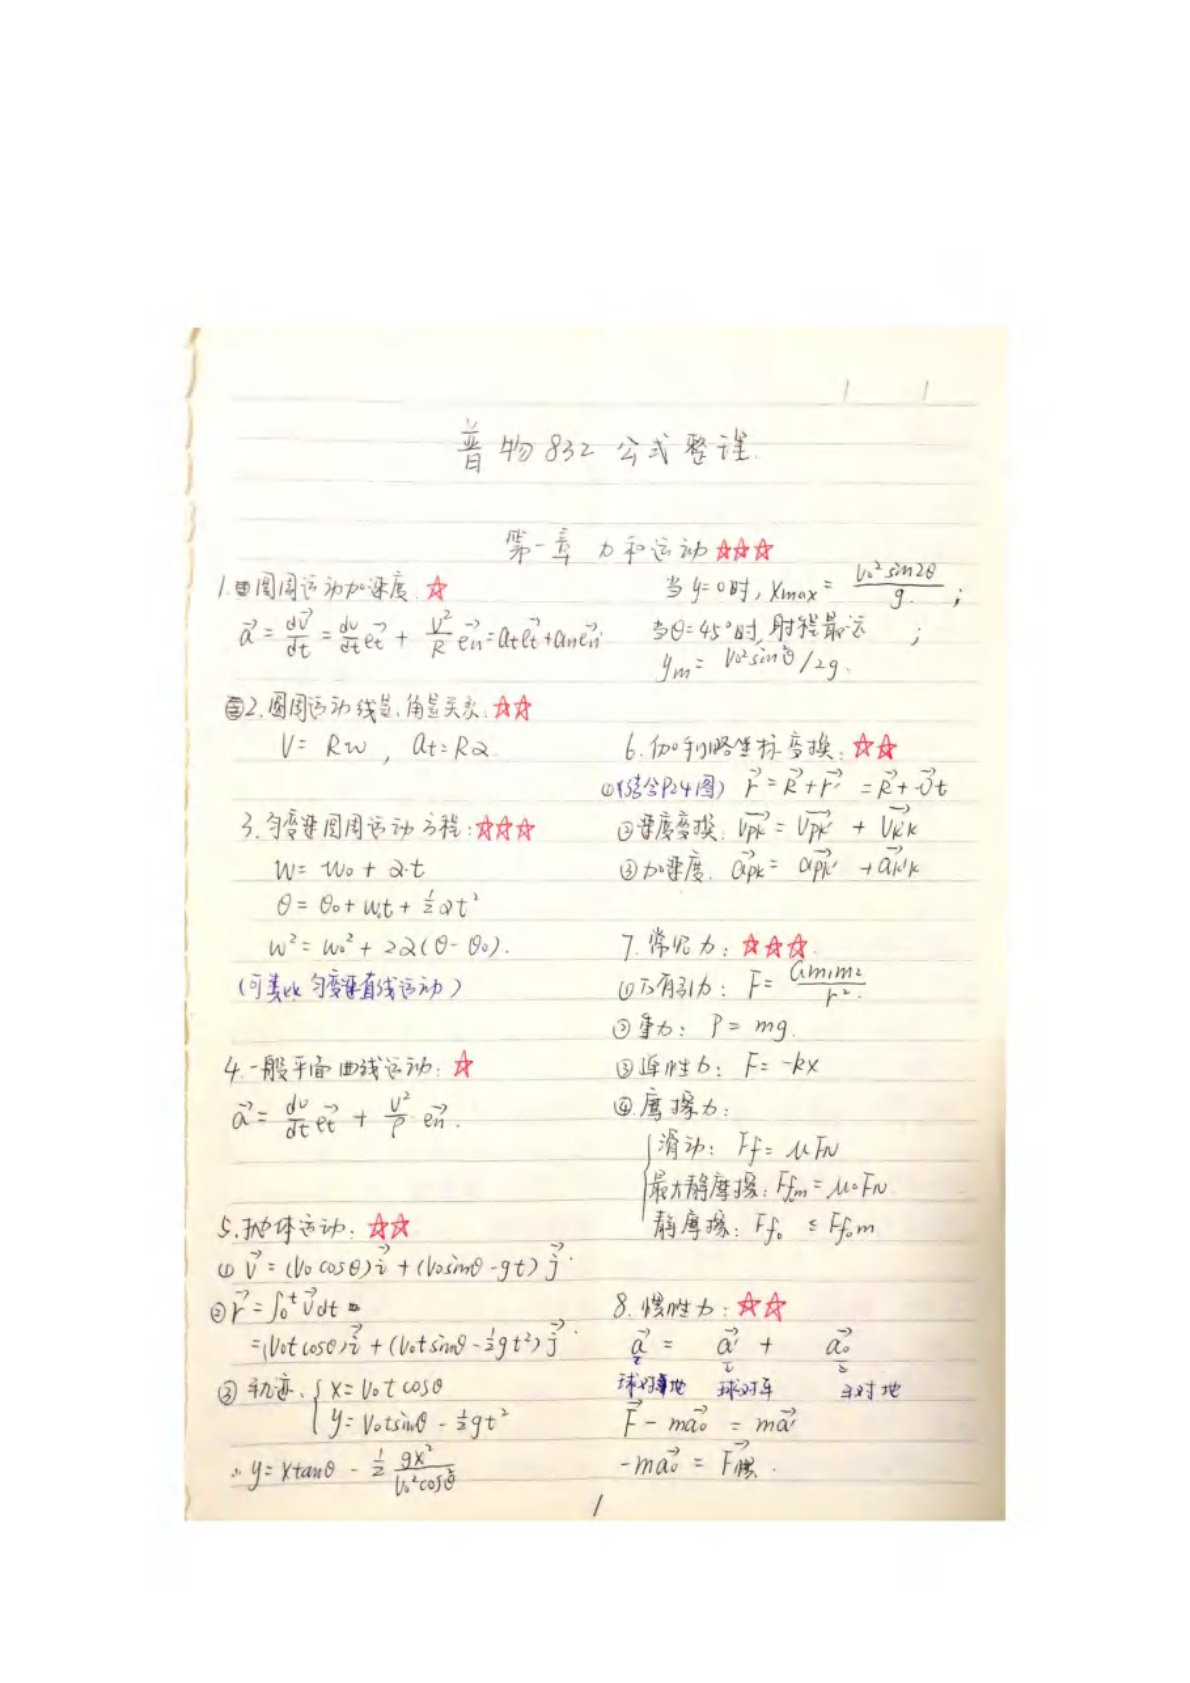 普物832 公式整理.
第一章 力和运动 ☆☆☆
1. 圆周运动加速度. ☆
a⃗ = dv⃗/dt = dv/dt e⃗t + v²/R e⃗n = at e⃗t + an e⃗n
2. 圆周运动线量、角量关系: ☆☆
V = Rω , at = Rα.
3. 匀变速圆周运动方程: ☆☆☆
ω = ω0 + α·t
θ = θ0 + ω0t + ½αt²
ω² = ω0² + 2α(θ - θ0).
(可类比匀变速直线运动)
4. 一般平面曲线运动: ☆
a⃗ = dv/dt e⃗t + v²/ρ e⃗n.
5. 抛体运动: ☆☆
① v⃗ = (V0 cosθ)i⃗ + (V0sinθ - gt) j⃗
② r⃗ = ∫0^t v⃗dt
= (V0t cosθ)i⃗ + (V0t sinθ - ½gt²) j⃗
③ 轨迹. { x = V0 t cosθ
y = V0tsinθ - ½gt²
∴ y = xtanθ - ½ gx²/(V0²cos²θ)
当 y=0时, Xmax = V0² sin2θ / g ;
当θ=45°时, 射程最远 ;
ym = V0²sin²θ /2g.
6. 伽利略坐标变换: ☆☆
①(结合P24图) r⃗ = R⃗ + r⃗' = R⃗ + v⃗t
②速度变换. V⃗pk = V⃗pk' + V⃗k'k
③加速度. a⃗pk = a⃗pk' + a⃗k'k
7. 常见力: ☆☆☆.
①万有引力: F = Gm1m2/r².
②重力: P = mg.
③弹性力: F = -kx
④.摩擦力:
{ 滑动: Ff = μFN
最大静摩擦: Ff0m = μ0FN
静摩擦: Ff0 ≤ Ff0m
8. 惯性力: ☆☆
a⃗ = a⃗' + a⃗0
球对地 球对车 车对地
F⃗ - ma⃗0 = ma⃗'
-ma⃗0 = F⃗惯.
1